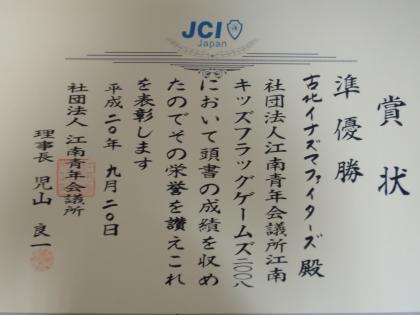 JCI
Japan
賞状
準優勝
古北イナズマファイターズ 殿
社団法人江南青年会議所江南
キッズフラッグゲームズ二〇〇八
において頭書の成績を収め
たのでその栄誉を讃えこれ
を表彰します
平成二〇年 九月二〇日
社団法人 江南青年会議所
理事長 児山 良一